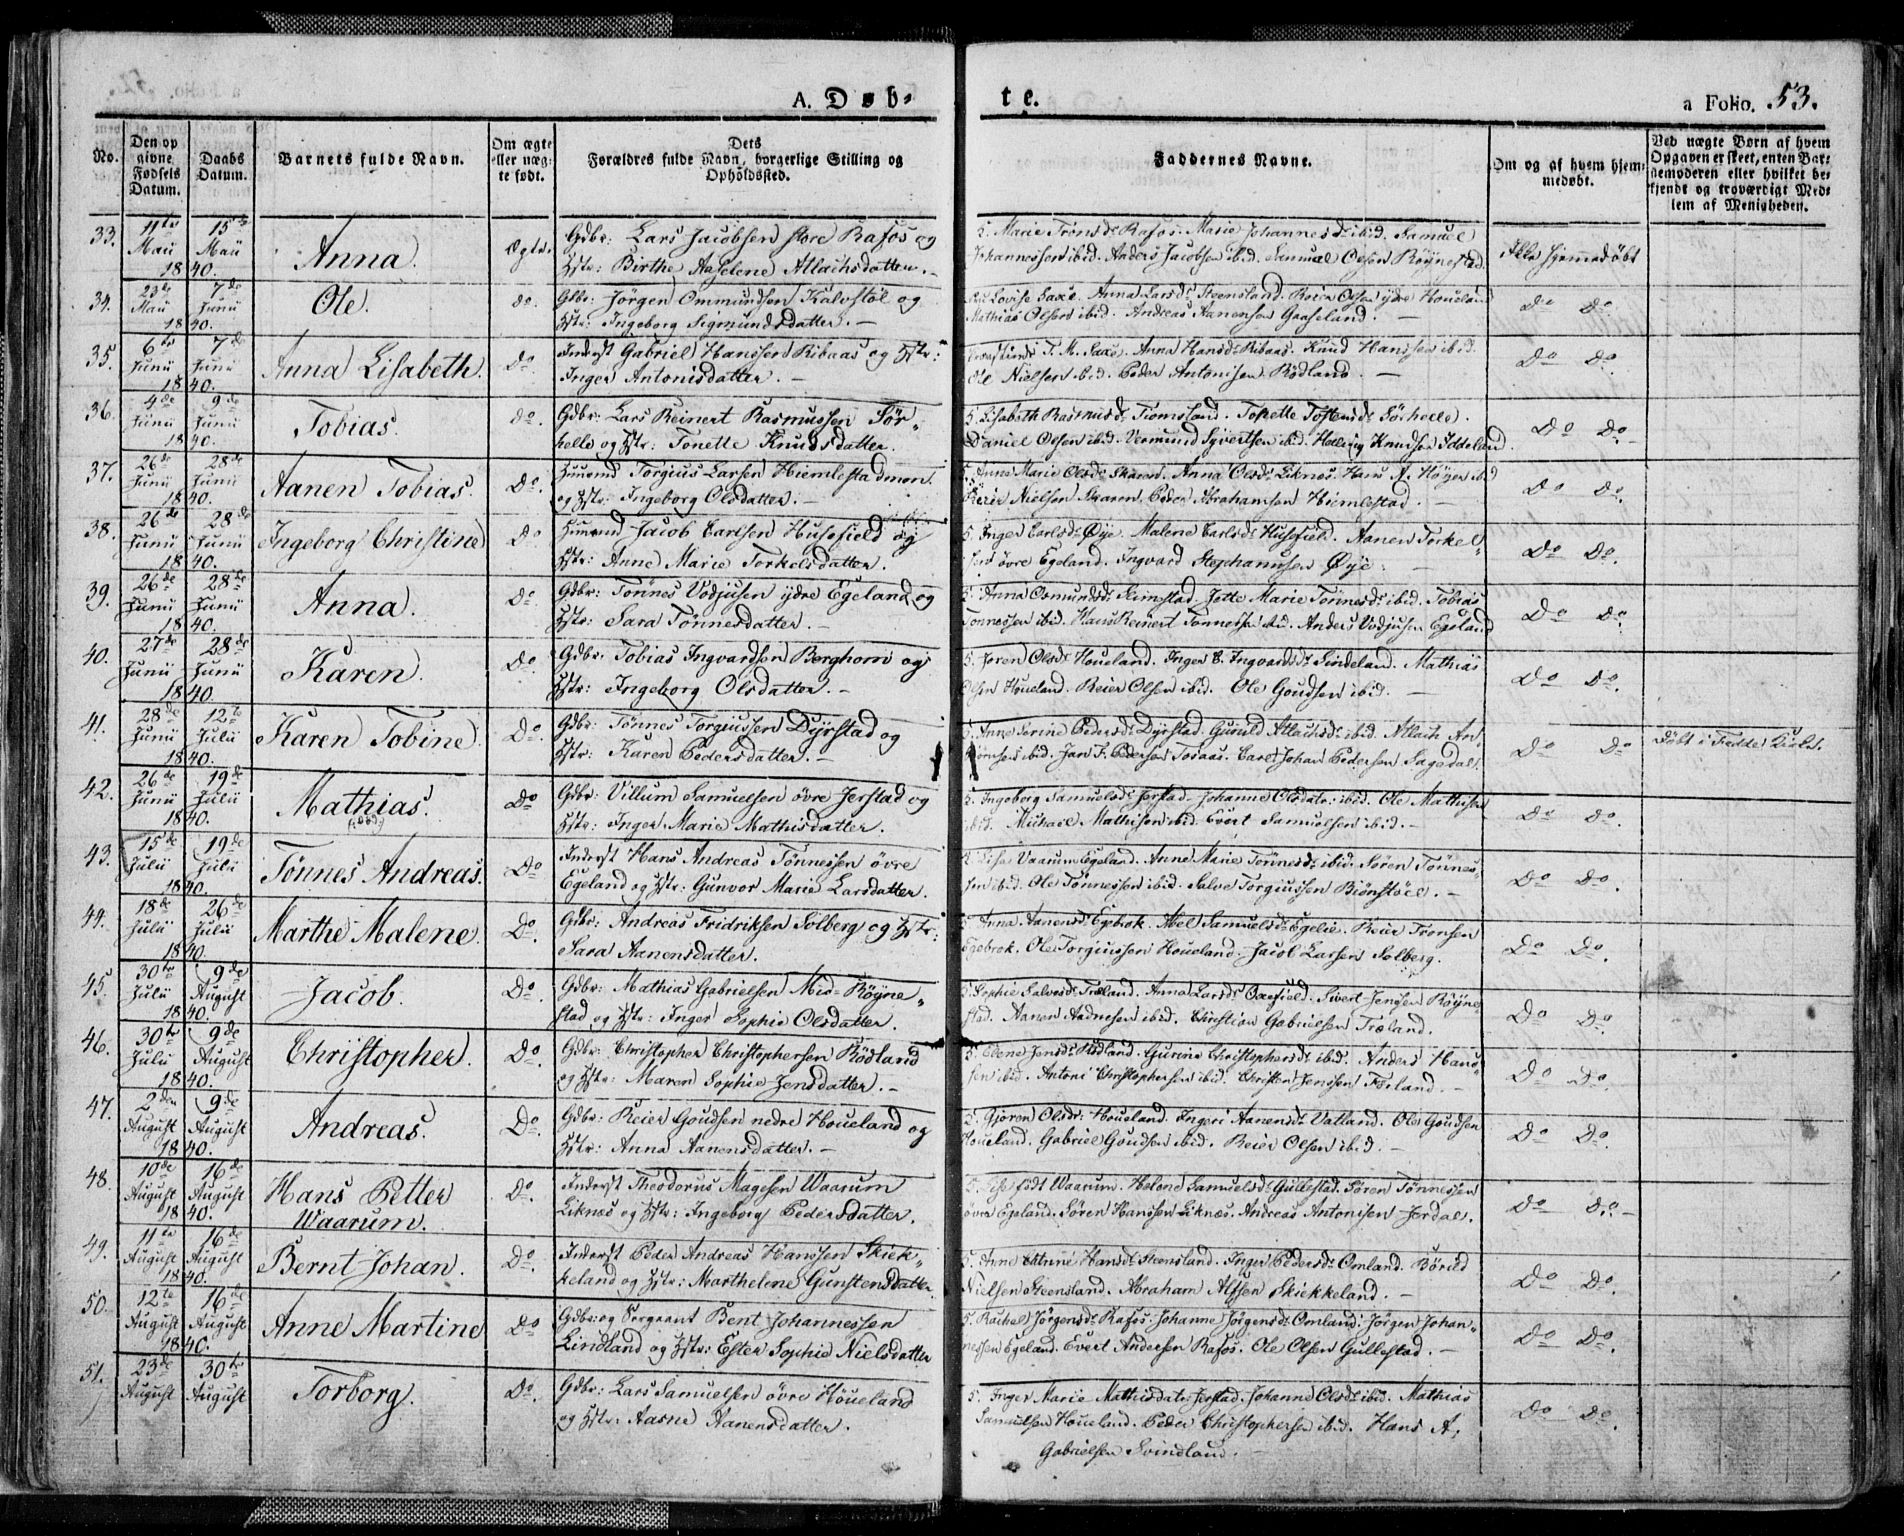 A. Døbte.
a Folio. 53.
No.
Den opgivne Fødsels Datum.
Daabs Datum.
Barnets fulde Navn.
Om ægte eller uægte født.
Dets Forældres fulde Navn, borgerlige Stilling og Opholdssted.
Faddernes Navne.
Om og af hvem hjemmedøbt.
Ved uægte Børn af hvem Opgaven er skeet, enten Barnemoderen eller hvilket bekjendt og troværdigt Medlem af Menigheden.
33. 11te Maii 1840. 15de Maii Anna. Ægte. Gdbr: Lars Jacobsen store Rafos og
Hstr: Birthe Aaselene Atlachsdatter. –
Marie Tronsdr Rafos. Marie Johannesdr ibid. Samuel
Johannessen ibid. Anders Jacobsen ibid. Samuel Olsen Röynestad. Ikke hjemmedøbt
34. 23de Maii 1840. 7de Junii Ole. do. Gdbr: Jörgen Ommundsen Kalvstöl og
Hstr: Ingeborg Sigmundsdatter. –
Lovise Saxe. Anna Larsdr Steensland. Reier Olsen ydre Houeland
Mathias Olsen ibid. Andreas Aanensen Gaaseland. – Do Do.
35. 6te Junii 1840. 7de Junii Anna Lisabeth. do. Inderst Gabriel Hanssen Ribaas og Hstr:
Inger Antonisdatter. –
T. M. Saxe. Anna Hansdr Ribaas. Knud Hanssen ibid.
Ole Nielsen ibid. Peder Antonisen Rödland. – Do Do.
36. 4de Junii 1840. 9de Junii Tobias. do. Gdbr: Lars Reinert Rasmussen Sör-
helle og Hstr: Tonette Knudsdatter.
5. Lisabeth Rasmusdr Fiomsland. Tonette Tostensdr Sörhelle.
Daniel Olsen ibid. Vermund Syvertsen ibid. Hellvig Knudsen Iddeland. Do Do.
37. 26de Junii 1840. 28de Junii Aanen Tobias. Do. Huusmd Torgius Larsen Hiemlestadmon.
og Hstr: Ingeborg Olsdatter. –
Anne Marie Olsdr Skaren. Anna Olsdr Liknes. Hans A. Höyer ibid
Reier Nielsen Skaren. Peder Abrahamsen Hiemlestad. – Do Do.
38. 26de Junii 1840. 28de Junii Ingeborg Christine Do. Huusmd Jacob Carlsen Husefield og
Hstr: Anne Marie Torkelsdatter.
5. Inger Carlsdr Øye. Malene Carlsdr Husefield. Aanen Torkel-
sen övre Egeland. Ingvard Stephanussen Øye. Do Do.
39. 26de Junii 1840. 28de Junii Anna. Do Gdbr: Tönnes Vodjusen ydre Egeland og
Hstr: Sara Tönnesdatter. –
5. Anna Osmundsdr Jerstad. Jette Marie Tönnesdr ibid. Tobias
Tönnessen ibid. Hans Reinert Tönnessen ibid. Anders Vodjusen Egeland Do Do.
40. 27de Junii 1840. 28de Junii Karen. Do. Gdbr: Tobias Ingvardsen Berghom og
Hstr: Ingeborg Olsdatter. –
5. Joren Olsdr Houeland. Inger E. Ingvardsdr Sindeland. Mathias
Olsen Houeland. Reier Olsen ibid. Ole Goudsen ibid. Do Do.
41. 28de Junii 1840. 12te Julii Karen Tobine. Do. Gdbr: Tönnes Torgiussen Dyrstad og
Hstr: Karen Pedersdatter. –
5. Anne Serine Pedersdr Dyrstad. Gunild Atlachsdr ibid. Atlach An-
ibid. Jan F. Pedersen Tosaas. Carl Johan Pedersen Sagedal. Do Do Døbt i Fedde Kirke.
42. 26de Junii 1840. 19de Julii Mathias. Do Gdbr: Villum Samuelsen övre Jerstad og
Hstr: Inger Marie Mathisdatter.
5. Ingeborg Samuelsdr Jerstad. Johanne Olsdatr: ibid. Ole Mathisen
ibid. Michael Mathisen ibid. Evert Samuelsen ibid. – Do Do.
43. 15de Julii 1840. 19de Julii Tönnes Andreas. Do Inderst Hans Andreas Tönnessen övre
Egeland og Hstr: Gunvor Marie Larsdatter.
5. Lise Vaarum Egeland. Anne Marie Tönnesdr ibid. Sören Tönnes-
sen ibid. Ole Tönnessen ibid. Salve Torgiussen Biönstöel. – Do Do.
44. 18de Julii 1840. 26de Julii Marthe Malene. Do. Gdbr: Andreas Fridriksen Solberg og Hstr:
Sara Aanensdatter.
5. Anna Aanensdr Egebrok. Abel Samuelsdr Egelie. Reier Tronsen
Egebrok. Ole Torgiussen Houeland. Jacob Larsen Solberg. Do Do.
45. 30te Julii 1840. 9de August Jacob. Do. Gdbr: Mathias Gabrielsen Mid-Röyne-
stad og Hstr: Inger Sophie Olsdatter.
5. Sophie Salvesdr Træland. Anna Larsdr Oxefield. Sivert Jensen Röyne-
stad. Aanen Aadnesen ibid. Christian Gabrielsen Træland. Do Do.
46. 30te Julii 1840. 9de August Christopher. Do. Gdbr: Christopher Christophersen Rödland
og Hstr: Maren Sophie Jensdatter. –
5. Edene Jensdr Rödland. Gurine Christophersdr ibid. Anders Hans-
sen ibid. Antoni Christophersen ibid. Christen Jenssen Föiland. – Do Do.
47. 2den August 1840. 9de August Andreas. Do. Gdbr: Reier Goudsen nedre Houeland og
Hstr: Anna Aanensdatter. –
5. Gjören Olsdr: Houeland. Ingeri Aanensdr Vatland. Ole Goudsen
Houeland. Gabriel Goudsen ibid. Reier Olsen ibid. – Do Do.
48. 10de August 1840. 16de August Hans Petter
Waarum. Do. Inderst Theodorus Magesen Waarum
Liknes og Hstr: Ingeborg Pedersdatter.
5. Lise født Waarum. Helene Samuelsdr Gullestad. Sören Tönnessen
övre Egeland. Sören Hanssen Liknes. Andreas Antonisen Jerdal. Do Do.
49. 11te August 1840. 16de August Bernt Johan. Do. Inderst Peder Andreas Hanssen Skiek-
keland og Hstr: Marthelene Gunstensdatter.
5. Anne Hansdr Steensland. Inger Pedersdr Omland. Börild
Nielsen Steensland. Abraham Alfsen Skiekkeland. – Do Do.
50. 12te August 1840. 16de August Anne Martine Do Gdbr: og Sergeant Bent Johannessen
Lindland og Hstr: Ester Sophie Nielsdatter
5. Rachel Jörgensdr Rafos. Johanne Jörgensdr Omland. Jörgen Johan-
nessen Egeland. Evert Andersen Rafos. Ole Olsen Gullestad. – Do Do.
51. 23de August 30te August Torborg. Do. Gdbr: Lars Samuelsen övre Höueland
og Hstr: Aasne Aanensdatter.
5. Inger Marie Mathisdatr Jerstad. Johanne Olsdr ibid. Mathias
Samuelsen Houeland. Peder Christophersen ibid. Hans A.
Gabrielsen Svindland. – Do Do.